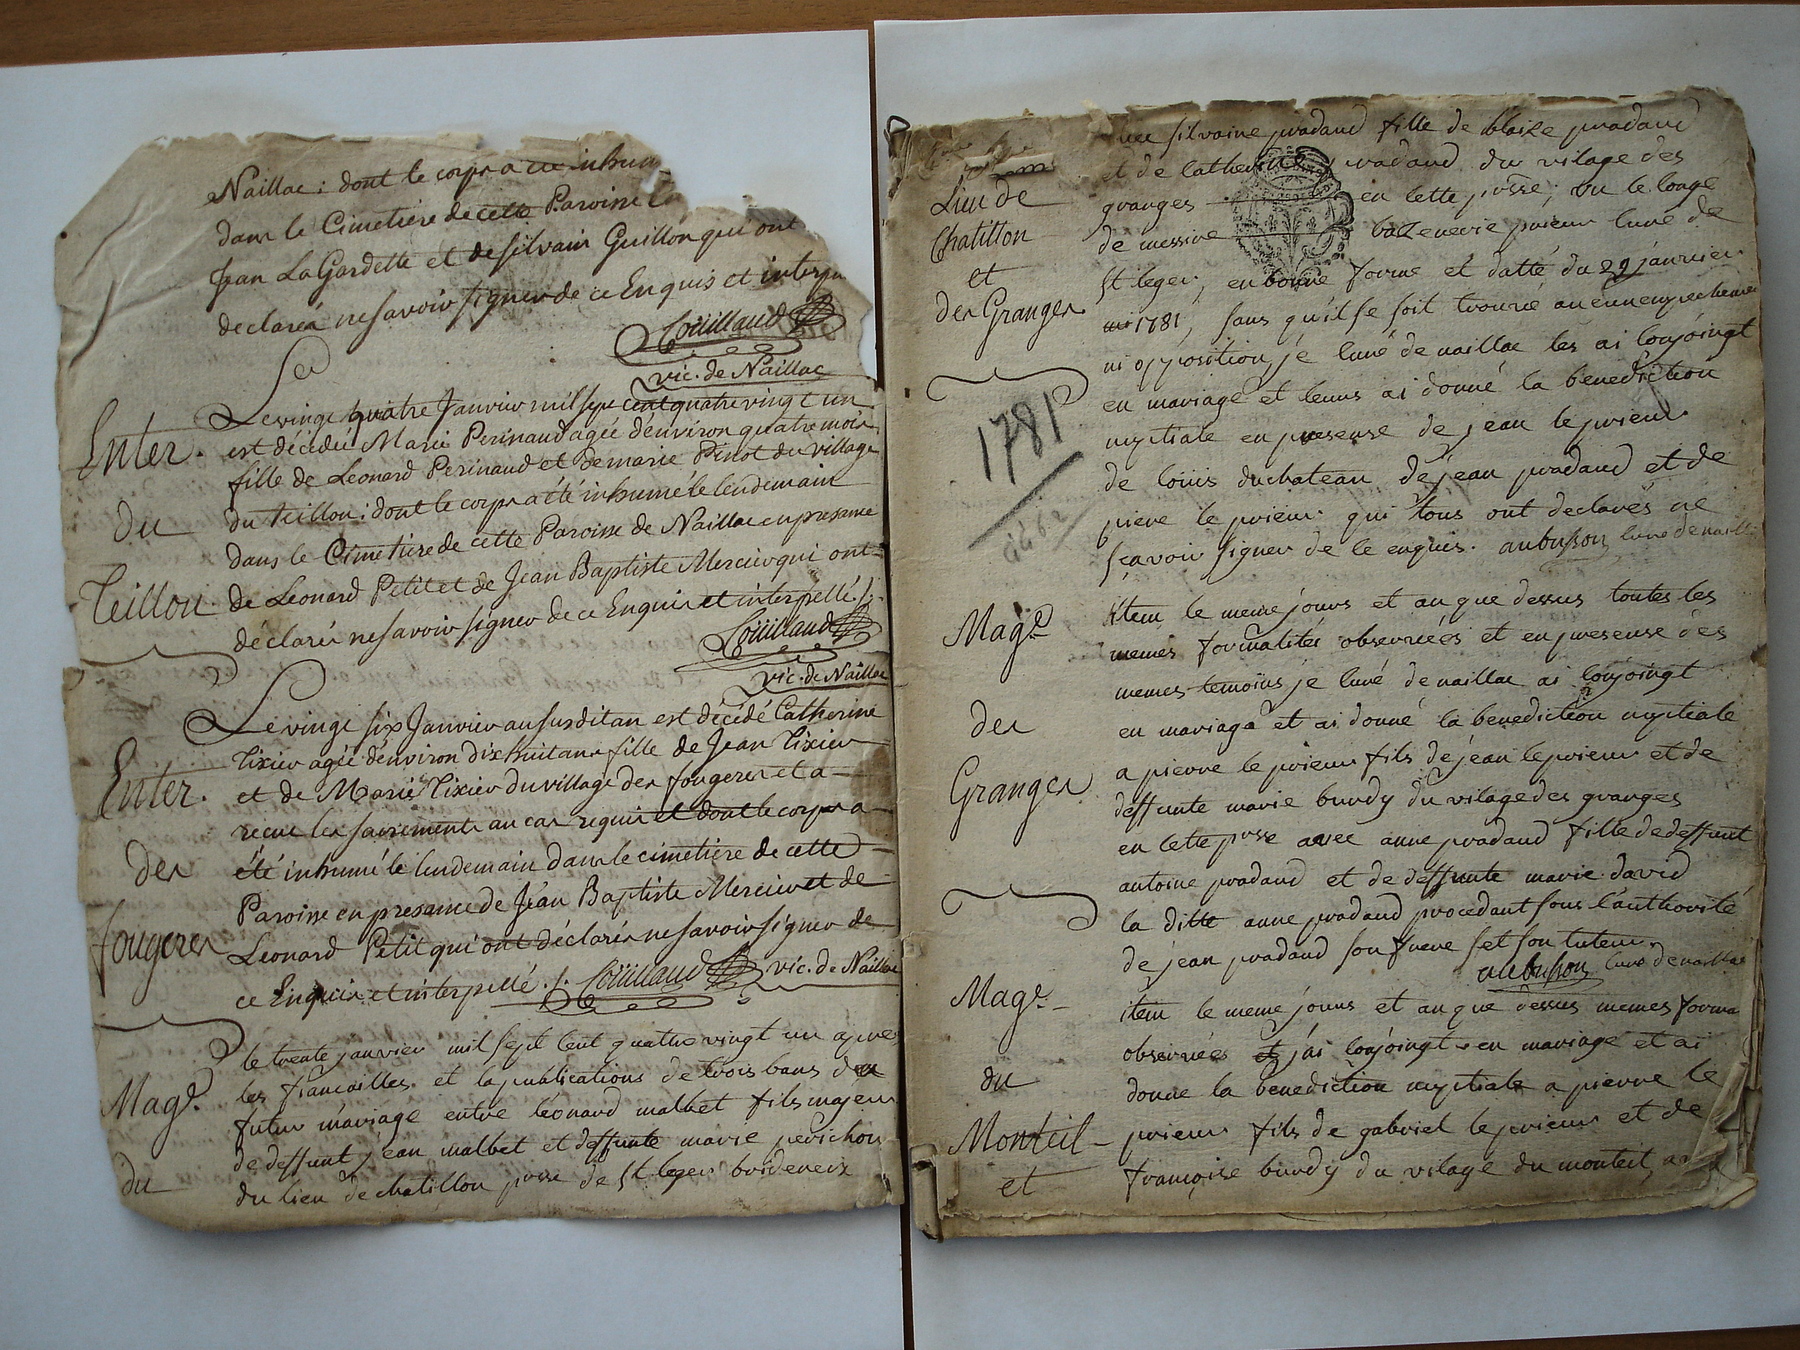 Naillac : dont le corps a été inhum
dans le Cimetiere de cette Paroisse
Jean LaGardette et de silvain Guillon qui ont
declarés ne savoir signer de ce Enquis et interpe
Coüillaud
vic. de Naillac
Enter.
du
Teillou.
Le vingt quatre Janvier mil sept cent quatre vingt un
est décédée Marie Perinaud agée d'environ quatre mois
fille de Leonard Perinaud et de marie Pinot du village
du teillou : dont le corps a été inhumé le lendemain
dans le Cimetiere de cette Paroisse de Naillac en presance
de Leonard Petit et de Jean Baptiste Mercier qui ont
déclarés ne savoir signer de ce Enquis et interpellé ./.
Coüillaud
vic. de Naillac
Enter.
des
fougeres
Le vingt six Janvier au susdit an est décédé Catherine
Tixier agée d'environ dix huit ans fille de Jean Tixier
et de Marie Tixier du village des fougeres et a
recue les sacrements au cas requis et dont le corps a
été inhumé le lendemain dans le cimetiere de cette
Paroisse en presance de Jean Baptiste Mercier et de
Leonard Petit qui ont déclarés ne savoir signer de
ce Enquis et interpellé ./. Coüillaud vic. de Naillac
Mag.e
du
le trente janvier mil sept cent quatre vingt un apres
les fiancailles et la publications de trois bans du
futur mariage entre léonard malbet fils majeur
de deffunt jean malbet et deffunte marie perichon
du lieu de chatillon psse de st leger bridereix
Lieu de
Chatillon
et
des Granges
1781
silvaine pradaud fille de blaize pradaud
et de catherine pradaud du vilage des
granges en cette psse ; vu le congé
de messire bazenerie prieur curé de
st leger, en bonne forme et datté du 29 janvier
1781, sans qu'il se soit trouvé aucun empechement
ni opposition, je curé de naillac les ai conjoingt
en mariage et leurs ai donné la benediction
nuptiale en presense de jean leprieur
de louis duchateau de jean pradaud et de
piere le prieur qui tous ont declarés ne
sçavoir signer de ce enquis. aubusson curé de naill
Mag.e
des
Granges
Item le meme jours et an que dessus toutes les
memes formalités observéés et en presense des
memes temoins je curé de naillac ai conjoingt
en mariage et ai donné la benediction nuptiale
a pierre le prieur fils de jean leprieur et de
deffunte marie burdy du vilage des granges
en cette psse avec anne pradaud fille de deffunt
antoine pradaud et de deffunte marie david
la ditte anne pradaud procedant sous l'authorité
de jean pradaud son frere et son tuteur.
aubusson curé de naillac
Mag.e
du
Monteil
et
item le meme jours et an que dessus memes forma
observéés j'ai conjoingt en mariage et ai
donné la benediction nuptiale a pierre le
prieur fils de gabriel le prieur et de
françoise burdy du vilage du monteil